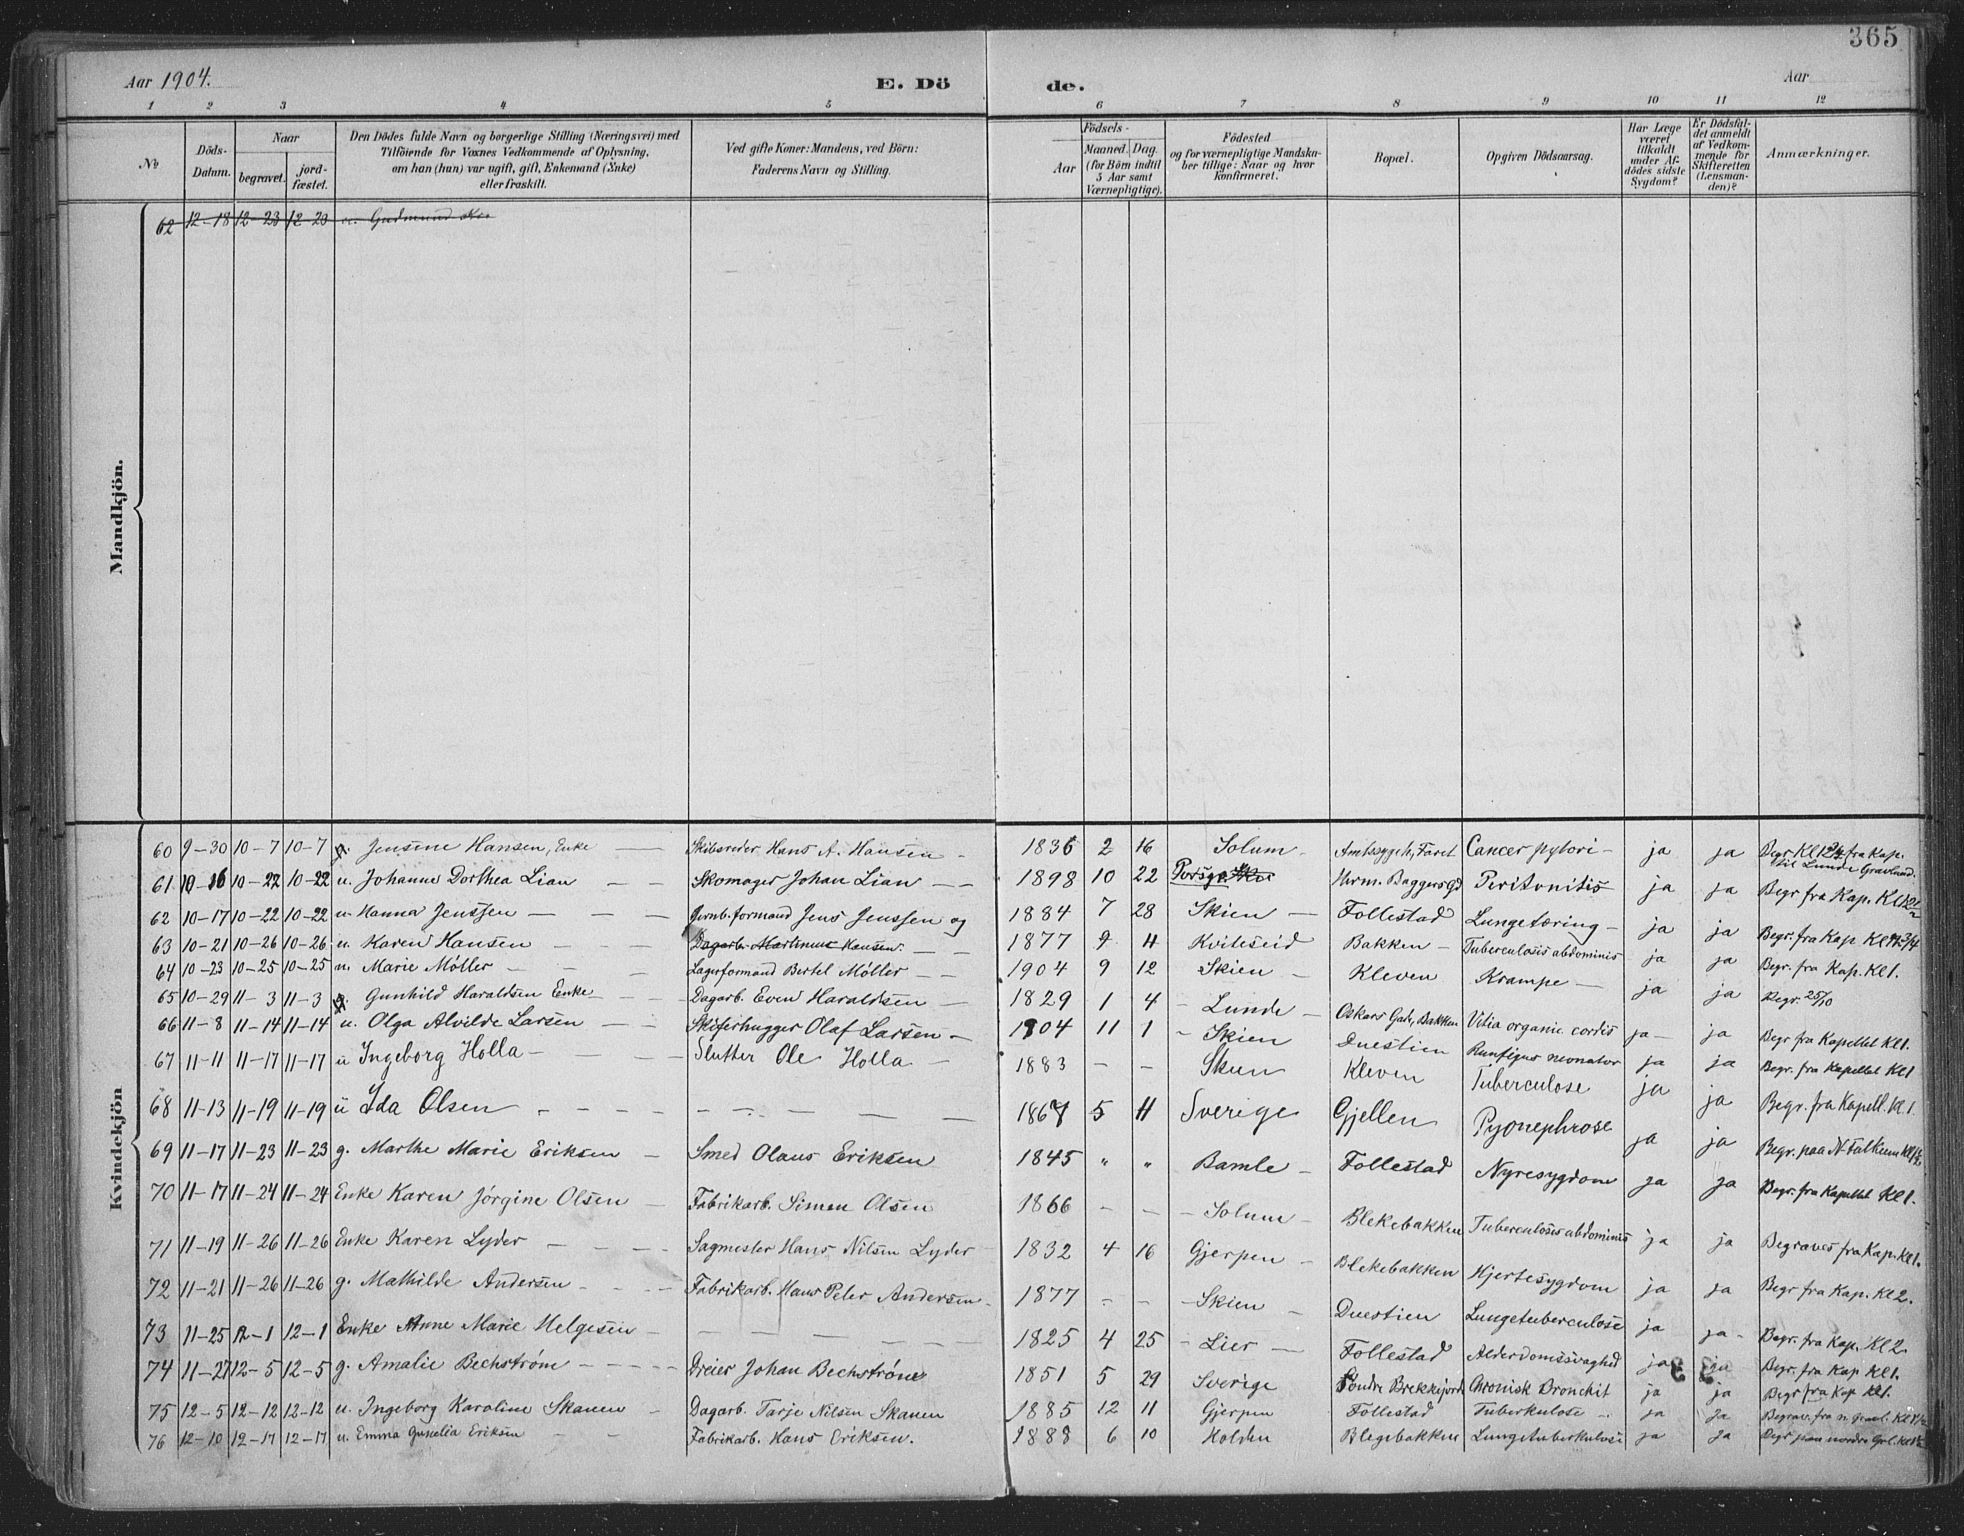 365
Aar 1904. E. Dö de. Aar
1 2 3 4 5 6 7 8 9 10 11 12
№
Döds-Datum.
Naar
begravet. jord-fæstet.
Den Dödes fulde Navn og borgerlige Stilling (Næringsvei) med
Tilföiende for Voxnes Vedkommende af Oplysning,
om han (hun) var ugift, gift, Enkemand (Enke)
eller fraskilt.
Ved gifte Koner: Mandens, ved Börn:
Faderens Navn og Stilling.
Födsels-
Aar Maaned. Dag.
(for Börn indtil
5 Aar samt
Værnepligtige).
Födested
og for værnepligtige Mandska-
ber tillige: Naar og hvor
Konfirmeret.
Bopæl.
Opgiven Dödsaarsag.
Har Læge
været
tilkaldt
under Af-
dödes sidste
Sygdom?
Er Dödsfal-
det anmeldt
af Vedkom-
mende for
Skifteretten
(Lensman-
den)?
Anmærkninger.
Mandkjön.
62 12-18 12-23 12-23 u. Gudmund
Kvindekjön
60 9-30 10-7 10-7 g. Jensine Hansen, Enke — Skibsreder Hans A. Hansen - 1836 2 16 Solum - Amtssygeh, Faret Cancer pylori - ja ja Begr Kl 12½ fra Kap. til Lunde Gravlund.
61 10-16 10-22 10-22 u. Johanne Dorthea Lian — Skomager Johan Lian — 1898 10 22 Porsgr. Urm. Baggers Gd Peritonitis ja ja Begr fra Kap. Kl 12½
62 10-17 10-22 10-22 u. Hanna Jenssen — Jernb. formand Jens Jenssen og 1884 7 28 Skien — Follestad Lungetæring - ja ja Begr. fra Kap Kl 1¾
63 10-21 10-26 10-26 u. Karen Hansen — Dagarb. Martinus Hansen. 1877 9 4 Kviteseid Bakken - Tuberculosis abdominis ja ja Begr. fra Kap. Kl 1.
64 10-23 10-25 10-25 u. Marie Møller — Lagerformand Bertel Møller — 1904 9 12 Skien - Kleven Krampe — ja ja Begr. 25/10
65 10-29 11-3 11-3 g. Gunhild Haraldsen Enke — Dagarb. Even Haraldsen — 1829 1 4 - Lunde - Oskars Gade, Bakken Vitia organic cordis ja - ja Begr fra Kapellet Kl 1.
66 11-8 11-14 11-14 u. Olga Alvilde Larsen — Skiferhugger Olaf Larsen — 1904 11 1 - Skien Duestien neonator ja ja Begr. fra Kapellet Kl 1
67 11-11 11-17 11-17 u Ingeborg Holla — Slutter Ole Holla — 1883 - - Skien Kleven Tuberculose ja ja Begr. fra Kapell. Kl 1.
68 11-13 11-19 11-19 u Ida Olsen — 1867 5 11 Sverige Gjellen Pyonephrose ja ja Begr. paa N. Falkum Kl 1½
69 11-17 11-23 11-23 g. Marthe Marie Eriksen — Smed Olaus Eriksen 1845 " " Bamle - Follestad Nyresygdom ja ja Begr. fra Kapellet Kl 1.
70 11-17 11-24 11-24 Enke Karen Jörgine Olsen — Fabrikarb. Simen Olsen 1866 - - - Solum - Blekebakken Tuberculosis abdominis ja ja Begraves fra Kap. Kl 1.
71 11-19 11-26 11-26 Enke Karen Lyder — Sagmester Hans Nilsen Lyder 1832 4 16 Gjerpen - Blekebakken Hjertesygdom ja ja Begr fra Kap. Kl 2.
72 11-21 11-26 11-26 g. Mathilde Andersen — Fabrikarb. Hans Peter Andersen - 1877 - - - Skien - Duestien Lungetuberculose ja ja - Begr. fra Kap. Kl 2.
73 11-25 12-1 12-1 Enke Anne Marie Helgesen — 1825 4 25 - Lier - Follestad Alderdomssvaghed ja ja Begr. fra Kap Kl 1.
74 11-27 12-5 12-5 g. Amalie Bechstrøm — Dreier Johan Bechstrøm 1851 5 29 Sverige Søndre Brekkejord Chronisk Bronchit ja ja Begr fra Kap Kl 1.
75 12-5 12-12 12-12 u. Ingeborg Karoline Skanen — Dagarb. Tarje Nilsen Skanen 1885 12 11 Gjerpen Follestad Tuberkulose - ja ja Begrav. fra n. Gravl. Kl 1½
76 12-10 12-17 12-17 u. Emma Gunelia Eriksen — Fabrikarb. Hans Eriksen. 1888 6 10 Holden Blegebakken Lungetuberkulose ja ja Begr paa nordre Grl. Kl 1½